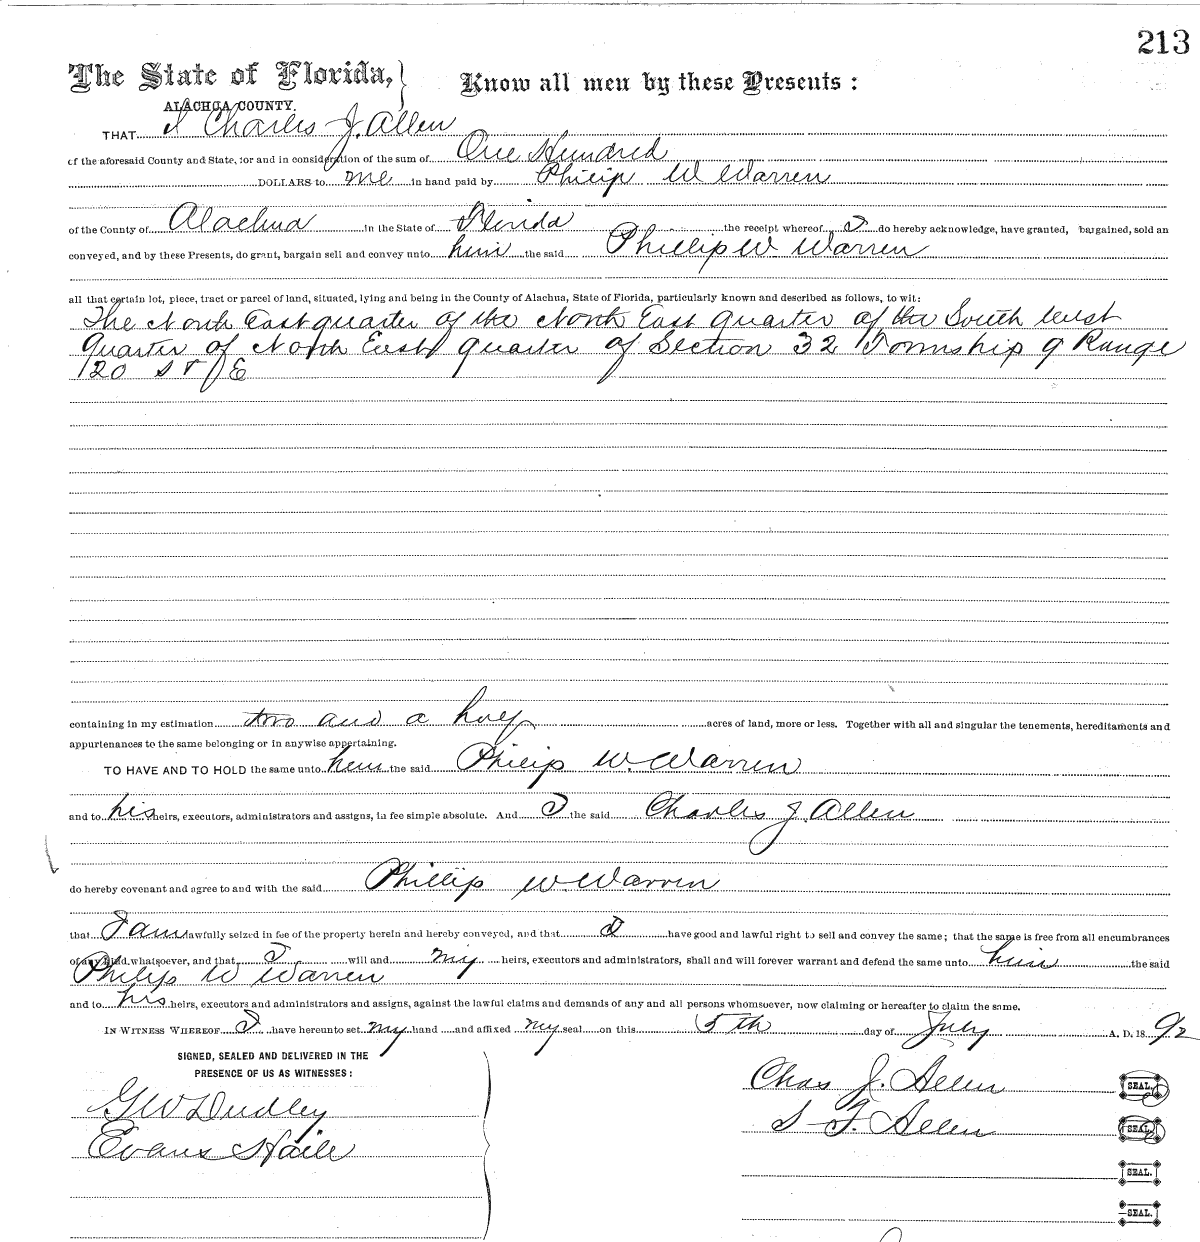 213
The State of Florida, Know all men by these Presents :
ALACHUA COUNTY.
THAT I Charles J. Allen
of the aforesaid County and State, for and in consideration of the sum of One Hundred
DOLLARS to me in hand paid by Philip W Warren
of the County of Alachua in the State of Florida the receipt whereof I do hereby acknowledge, have granted, bargained, sold an
conveyed, and by these Presents, do grant, bargain sell and convey unto him the said Phillip W. Warren
all that certain lot, piece, tract or parcel of land, situated, lying and being in the County of Alachua, State of Florida, particularly known and described as follows, to wit:
The North East quarter of the North East quarter of the South West
quarter of North East quarter of Section 32 Township 9 Range
20 S & E
containing in my estimation two and a half acres of land, more or less. Together with all and singular the tenements, hereditaments and
appurtenances to the same belonging or in anywise appertaining.
TO HAVE AND TO HOLD the same unto him the said Philip W. Warren
and to his heirs, executors, administrators and assigns, in fee simple absolute. And I the said Charles J. Allen
do hereby covenant and agree to and with the said Phillip W Warren
that I am lawfully seized in fee of the property herein and hereby conveyed, and that I have good and lawful right to sell and convey the same; that the same is free from all encumbrances
of any kind whatsoever, and that I will and my heirs, executors and administrators, shall and will forever warrant and defend the same unto him the said
Philip W Warren
and to his heirs, executors and administrators and assigns, against the lawful claims and demands of any and all persons whomsoever, now claiming or hereafter to claim the same.
IN WITNESS WHEREOF I have hereunto set my hand and affixed my seal on this 5th day of July A. D. 18 92
SIGNED, SEALED AND DELIVERED IN THE
PRESENCE OF US AS WITNESSES :
Chas J. Allen SEAL.
G W Dudley
S F. Allen SEAL.
Evans Haile
SEAL.
SEAL.